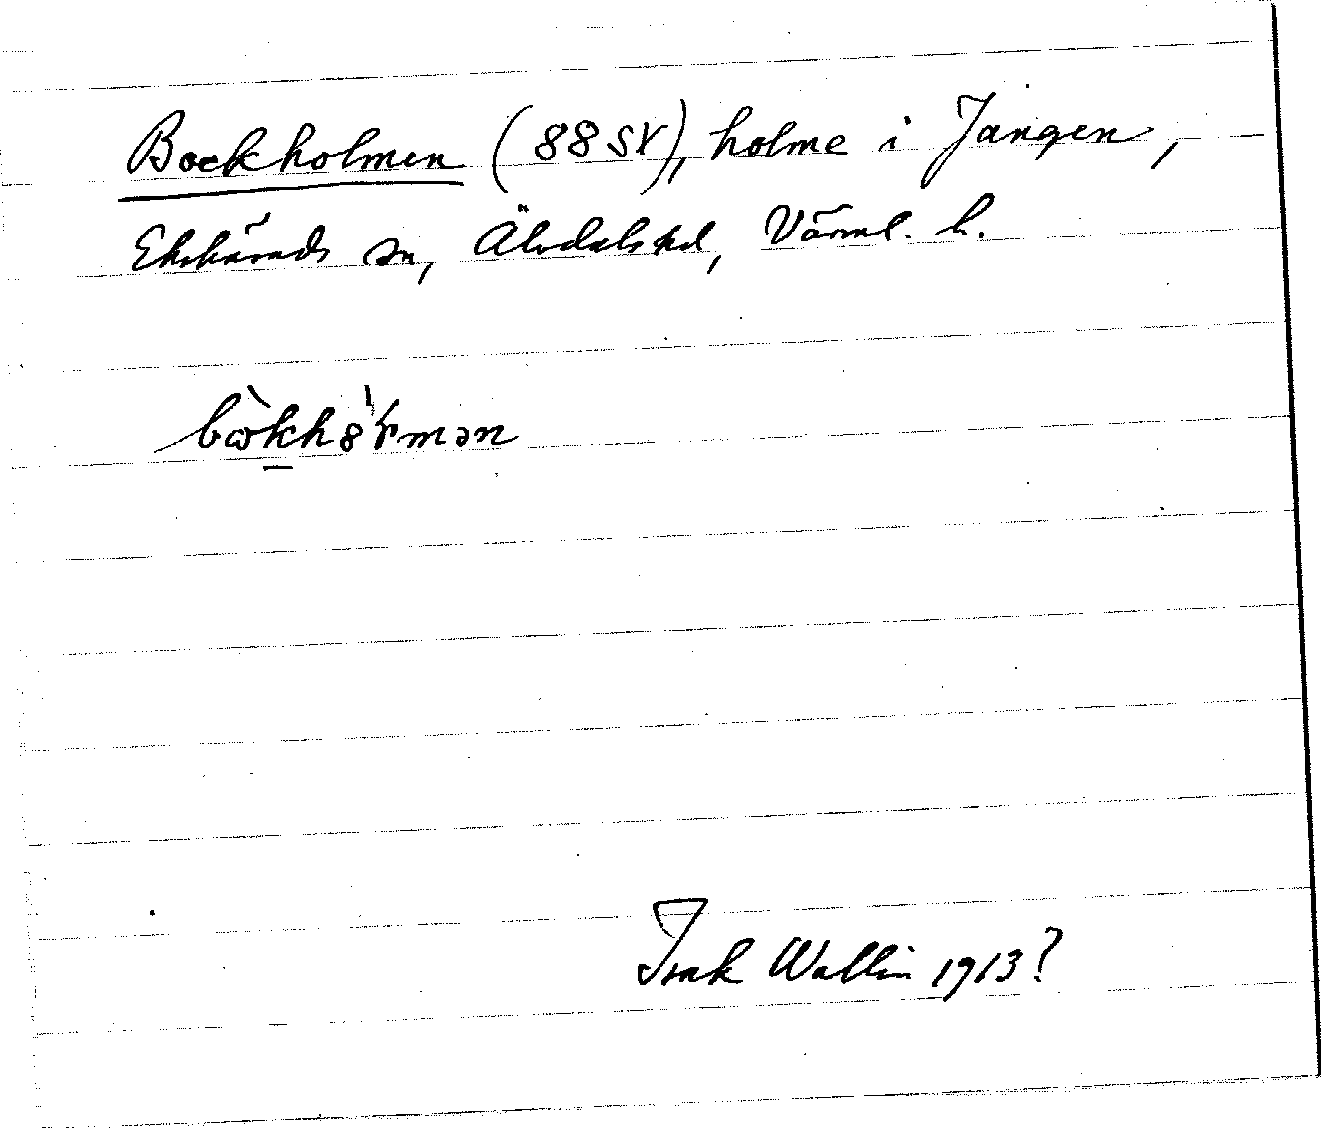 Bockholmen (88 SV), holme i Jangen,
Ekshärads sn, Älvdals hd, Värml. l.
Isak Wallin 1913?